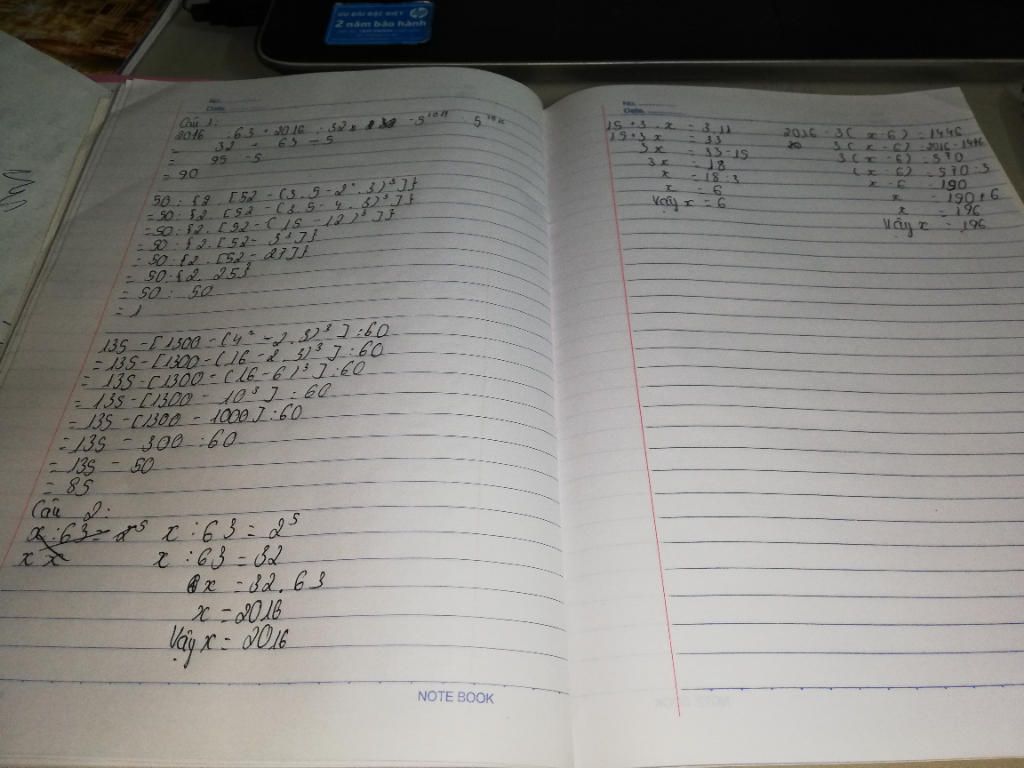 ƯU ĐÃI ĐẶC BIỆT
2 năm bảo hành
hp
No.
Date
Câu 1:
2016 : 63 + 2016 : 32
= 32 + 63 - 5
= 95 - 5
= 90
50 : {2 . [52 - (3 . 5 - 2² . 3)³]}
= 50 : {2 . [52 - (3 . 5 - 4 . 3)³]}
= 50 : {2 . [52 - (15 - 12)³]}
= 50 : {2 . [52 - 3³]}
= 50 : {2 . [52 - 27]}
= 50 : {2 . 25}
= 50 : 50
= 1
135 - [1300 - (4² - 2 . 3)³] : 60
= 135 - [1300 - (16 - 2 . 3)³] : 60
= 135 - [1300 - (16 - 6)³] : 60
= 135 - [1300 - 10³] : 60
= 135 - [1300 - 1000] : 60
= 135 - 300 : 60
= 135 - 50
= 85
Câu 2:
x : 63 = 2⁵
x : 63 = 2⁵
x : 63 = 32
x = 32 . 63
x = 2016
Vậy x = 2016
NOTE BOOK
No.
Date
15 + 3 . x = 3.11
15 + 3x = 33
3x = 33 - 15
3x = 18
x = 18 : 3
x = 6
Vậy x = 6
2016 - 3(x - 6) = 1446
3(x - 6) = 2016 - 1446
3(x - 6) = 570
(x - 6) = 570 : 3
x - 6 = 190
x = 190 + 6
x = 196
Vậy x = 196